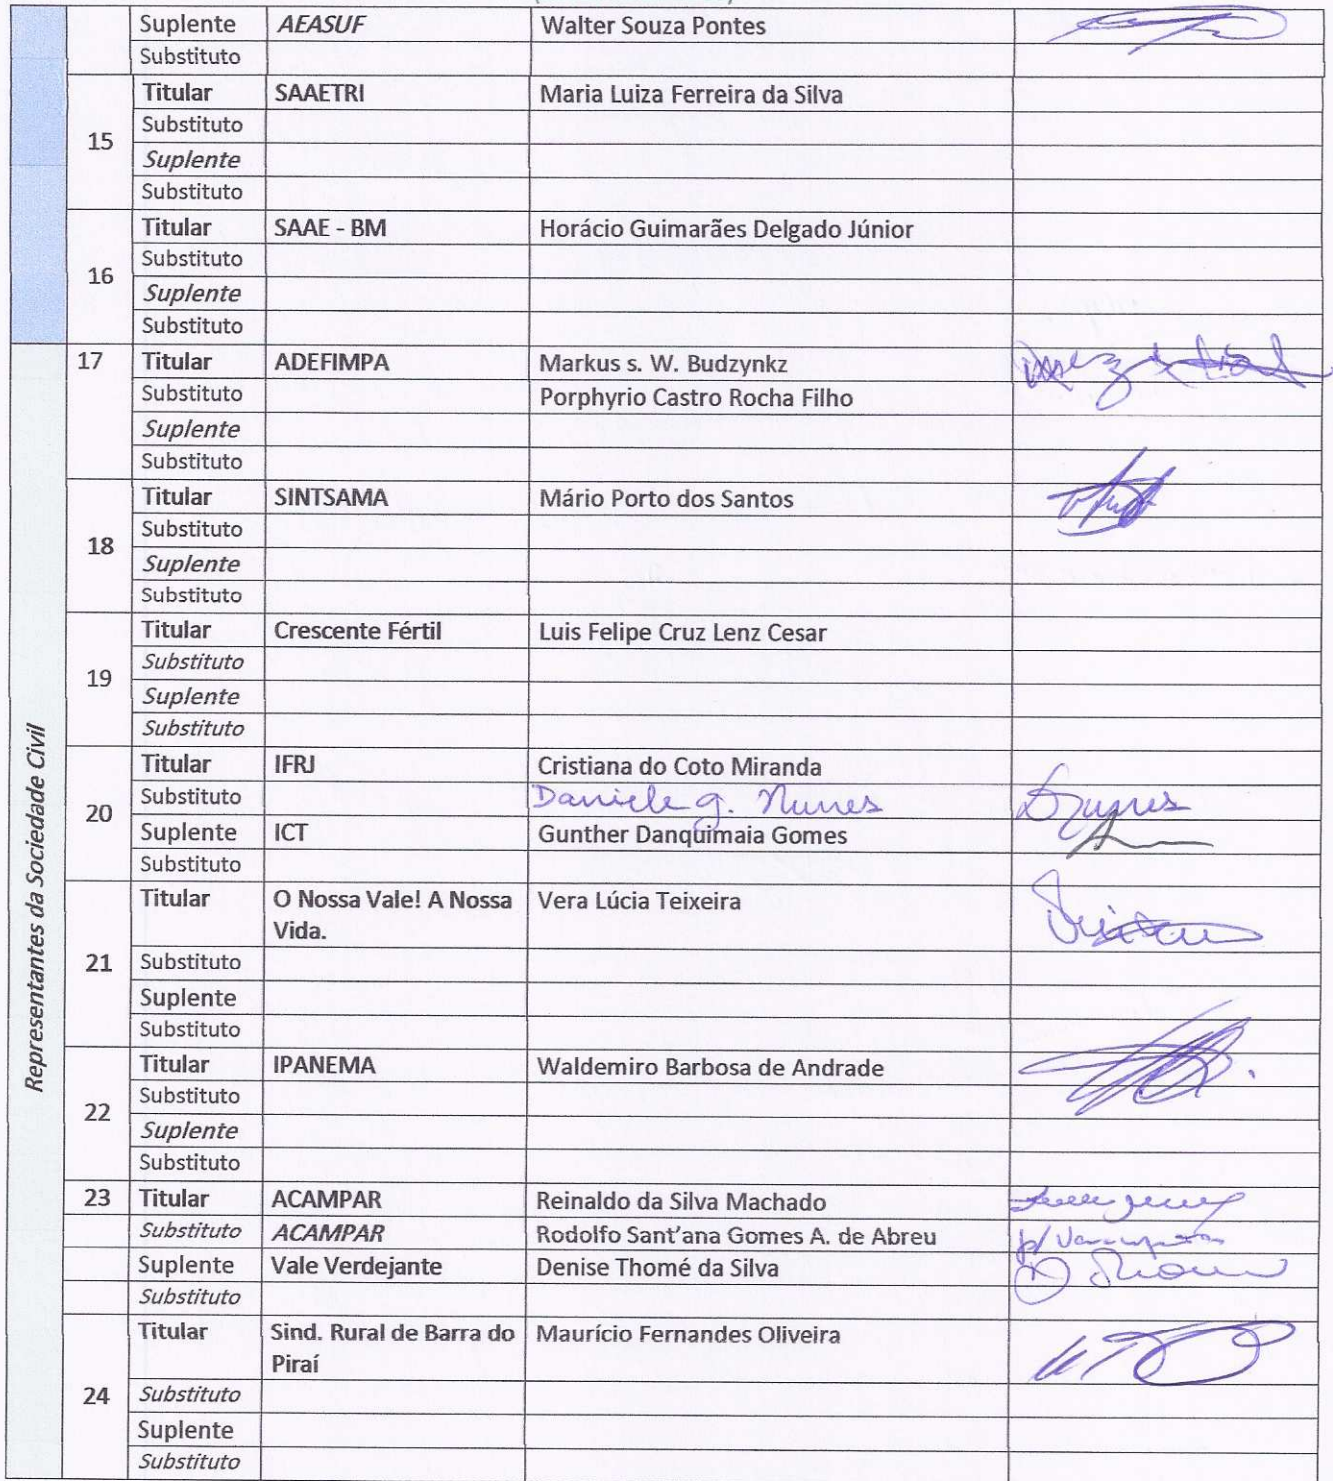 Suplente AEASUF Walter Souza Pontes
Substituto
Titular SAAETRI Maria Luiza Ferreira da Silva
Substituto
15
Suplente
Substituto
Titular SAAE - BM Horácio Guimarães Delgado Júnior
Substituto
16
Suplente
Substituto
Representantes da Sociedade Civil
17 Titular ADEFIMPA Markus s. W. Budzynkz
Substituto Porphyrio Castro Rocha Filho
Suplente
Substituto
Titular SINTSAMA Mário Porto dos Santos
Substituto
18
Suplente
Substituto
Titular Crescente Fértil Luis Felipe Cruz Lenz Cesar
Substituto
19
Suplente
Substituto
Titular IFRJ Cristiana do Coto Miranda
Substituto Daniele G. Nunes
20
Suplente ICT Gunther Danquimaia Gomes
Substituto
Titular O Nossa Vale! A Nossa Vera Lúcia Teixeira
Vida.
21 Substituto
Suplente
Substituto
Titular IPANEMA Waldemiro Barbosa de Andrade
Substituto
22
Suplente
Substituto
23 Titular ACAMPAR Reinaldo da Silva Machado
Substituto ACAMPAR Rodolfo Sant'ana Gomes A. de Abreu
Suplente Vale Verdejante Denise Thomé da Silva
Substituto
Titular Sind. Rural de Barra do Maurício Fernandes Oliveira
Piraí
24 Substituto
Suplente
Substituto